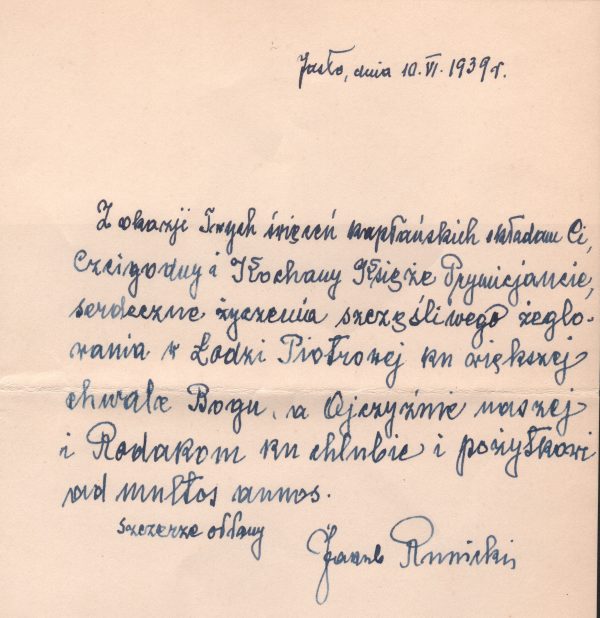 Jasło, dnia 10.VI.1939 r.
Z okazji Twych święceń kapłańskich składam Ci,
Czcigodny i Kochany Księże Prymicjancie,
serdeczne życzenia szczęśliwego żeglo-
wania w Łodzi Piotrowej ku większej
chwale Bogu, a Ojczyźnie naszej
i Rodakom ku chlubie i pożytkowi
ad multos annos.
szczerze oddany